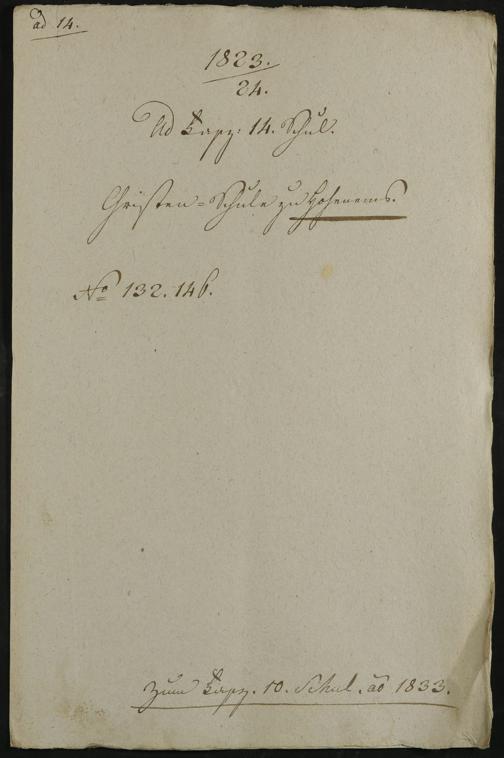 ad 14.
1823.
24.
Ad Fasz: 14. Schul.
Christen=Schule zu Hohenems.
No 132. 146.
Zum Fasz. 10. Schul. ad 1833.